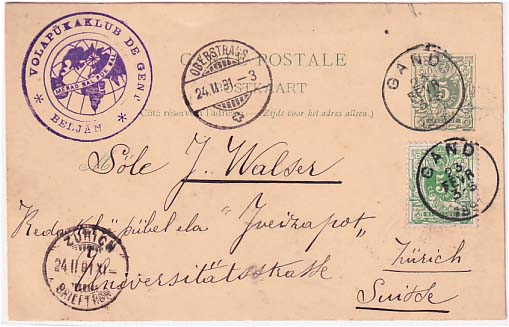 VOLAPÜKAKLUB DE GENT
MENAD BAL PÜK BAL
BELJÄN
OBERSTRASS
24.II.91.-3
CARTE POSTALE
POSTKAART
(Côté réservé à l'adresse. Zijde voor het adres alleen.)
GAND
5
GAND
23
FEVR
Söle J. Walser
Redakelöpübel ela "Zveizapot"
Universitätsstrasse
Zürich
Suisse
ZÜRICH
24 II 91 XI-
BRIEFTRÄG